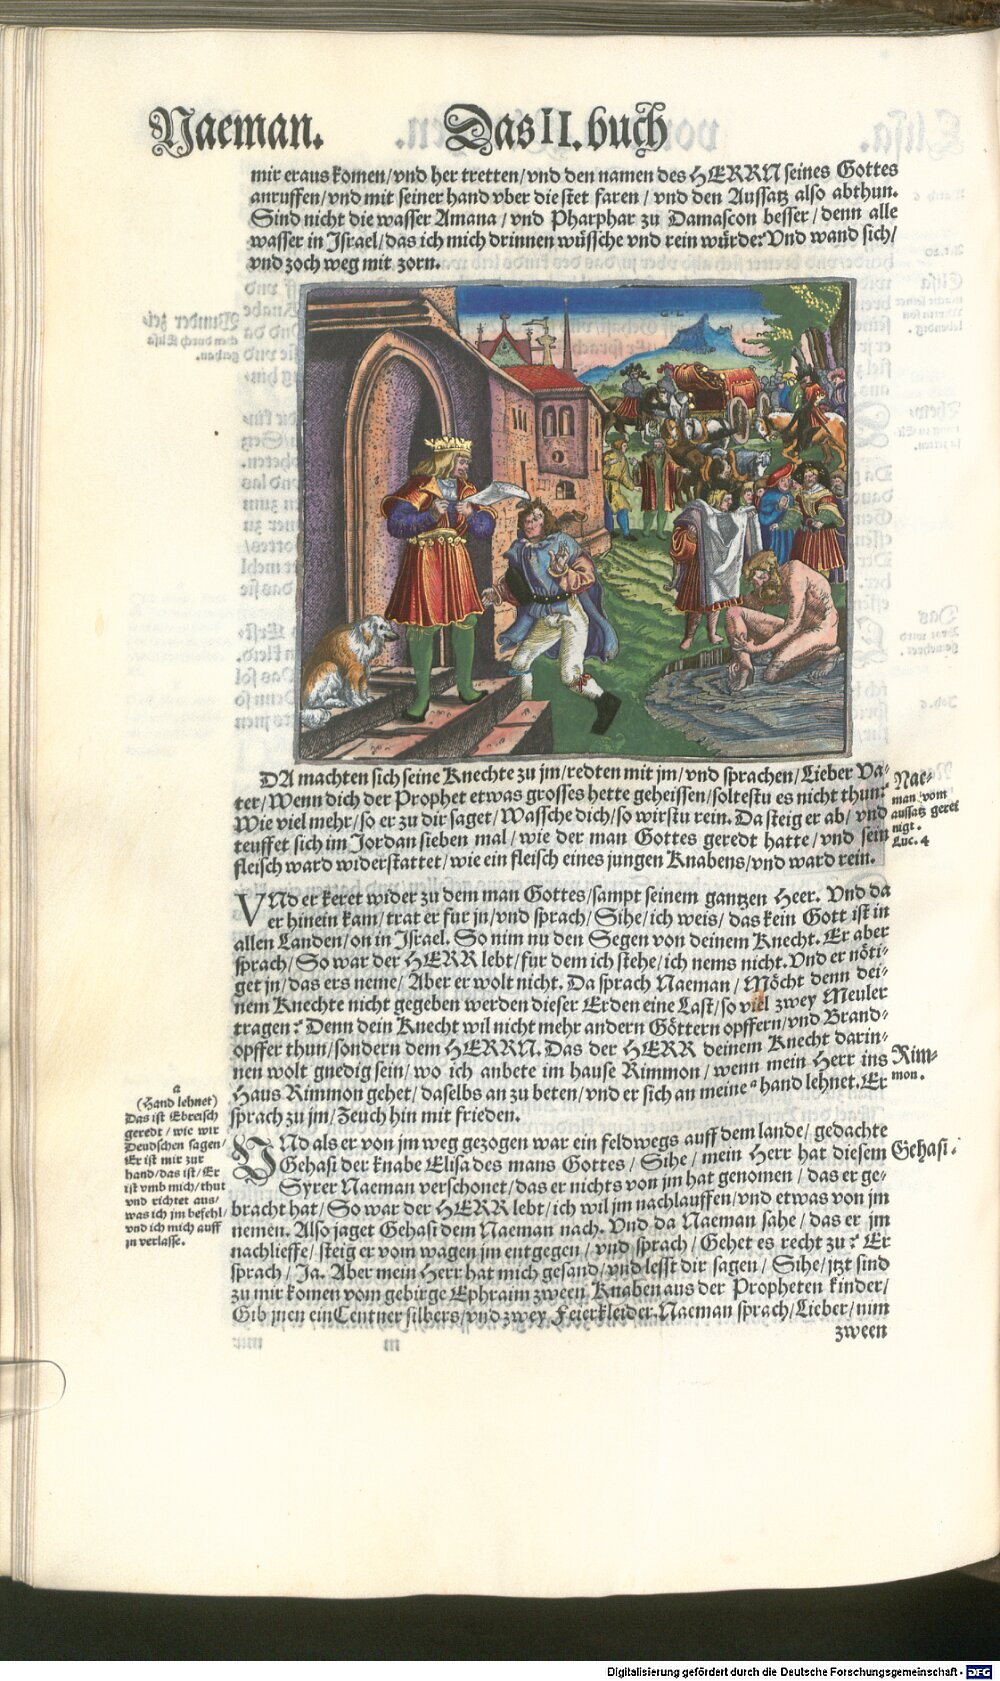 Naeman. Das II. buch
mir eraus komen/vnd her tretten/vnd den namen des HERRN seines Gottes
anruffen/vnd mit seiner hand vber die stet faren/vnd den Aussatz also abthun.
Sind nicht die wasser Amana/vnd Pharphar zu Damascon besser/denn alle
wasser in Israel/das ich mich drinnen wüssche vnd rein würde? Vnd wand sich/
vnd zoch weg mit zorn.
DA machten sich seine Knechte zu jm/redten mit jm/vnd sprachen/Lieber Va-
ter/Wenn dich der Prophet etwas grosses hette geheissen/soltestu es nicht thun?
Wie viel mehr/so er zu dir saget/Wassche dich/so wirstu rein. Da steig er ab/vnd
teuffet sich im Jordan sieben mal/wie der man Gottes geredt hatte/vnd sein
fleisch ward widerstattet/wie ein fleisch eines jungen Knabens/vnd ward rein.
Nae-
man vom
aussatz gerei
nigt.
Luc. 4
VNd er keret wider zu dem man Gottes/sampt seinem gantzen Heer. Vnd da
er hinein kam/trat er fur jn/vnd sprach/Sihe/ich weis/das kein Gott ist in
allen Landen/on in Israel. So nim nu den Segen von deinem Knecht. Er aber
sprach/So war der HERR lebt/fur dem ich stehe/ich nems nicht. Vnd er nöti-
get jn/das ers neme/Aber er wolt nicht. Da sprach Naeman/Möcht denn dei-
nem Knechte nicht gegeben werden dieser Erden eine Last/so viel zwey Meuler
tragen? Denn dein Knecht wil nicht mehr andern Göttern opffern/vnd Brand-
opffer thun/sondern dem HERRN. Das der HERR deinem Knecht darin-
nen wolt gnedig sein/wo ich anbete im hause Rimmon/wenn mein Herr ins
Haus Rimmon gehet/daselbs an zu beten/vnd er sich an meine a hand lehnet. Er
sprach zu jm/Zeuch hin mit frieden.
Rim-
mon.
a
(Hand lehnet)
Das ist Ebreisch
geredt/wie wir
Deudschen sagen/
Er ist mir zur
hand/das ist/Er
ist vmb mich/thut
vnd richtet aus/
was ich jm befehl/
vnd ich mich auff
jn verlasse.
VNd als er von jm weg gezogen war ein feldwegs auff dem lande/gedachte
Gehasi der knabe Elisa des mans Gottes/Sihe/mein Herr hat diesem
Syrer Naeman verschonet/das er nichts von jm hat genomen/das er ge-
bracht hat/So war der HERR lebt/ich wil jm nachlauffen/vnd etwas von jm
nemen. Also jaget Gehasi dem Naeman nach. Vnd da Naeman sahe/das er jm
nachlieffe/steig er vom wagen jm entgegen/vnd sprach/Gehet es recht zu? Er
sprach/Ja. Aber mein Herr hat mich gesand/vnd lesst dir sagen/Sihe/jtzt sind
zu mir komen vom gebirge Ephraim zween Knaben aus der Propheten kinder/
Gib jnen ein Centner silbers/vnd zwey Feierkleider. Naeman sprach/Lieber/nim
zween
Gehasi.
Digitalisierung gefördert durch die Deutsche Forschungsgemeinschaft - DFG